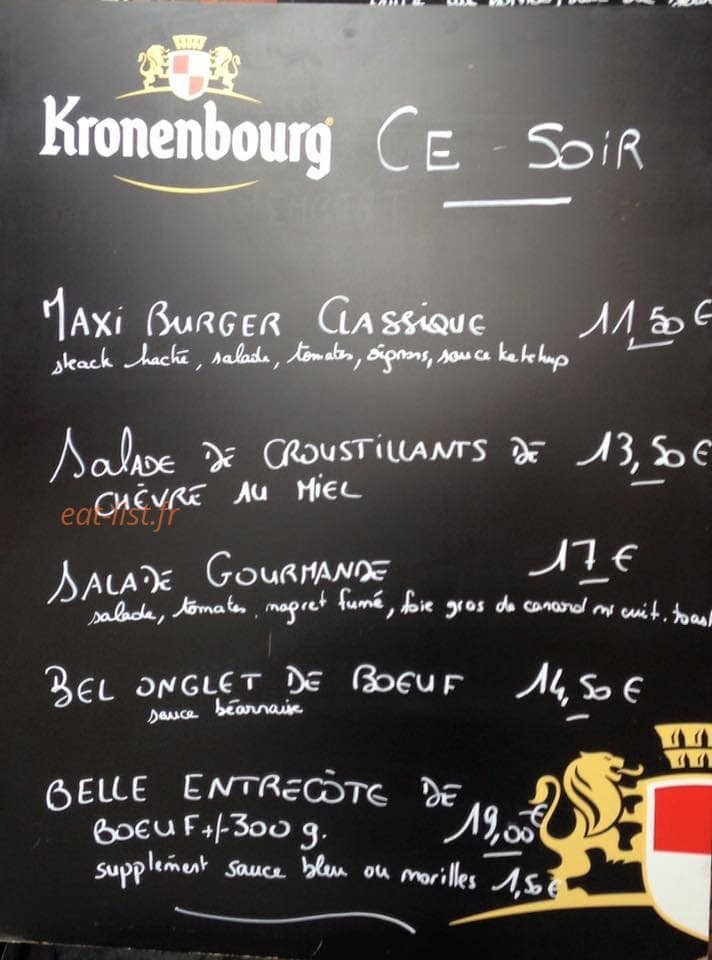 Kronenbourg CE - SOIR
MAXI BURGER CLASSIQUE 11,50 €
steack haché, salade, tomates, oignons, sauce ketchup
SALADE DE CROUSTILLANTS DE 13,50 €
CHÈVRE AU MIEL
eat-list.fr
SALADE GOURMANDE 17 €
salade, tomates, magret fumé, foie gras de canard mi cuit. toast
BEL ONGLET DE BOEUF 14,50 €
sauce béarnaise
BELLE ENTRECÔTE DE
BOEUF +/- 300 g. 19,00 €
supplément sauce bleu ou morilles 1,50 €